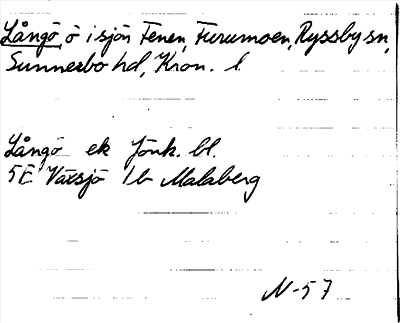 Långö ö i sjön Fenen, Furumoen, Ryssby sn,
Sunnerbo hd, Kron. l.
Långö ek Jönk. bl.
5E Växsjö 1b Malaberg
N-57